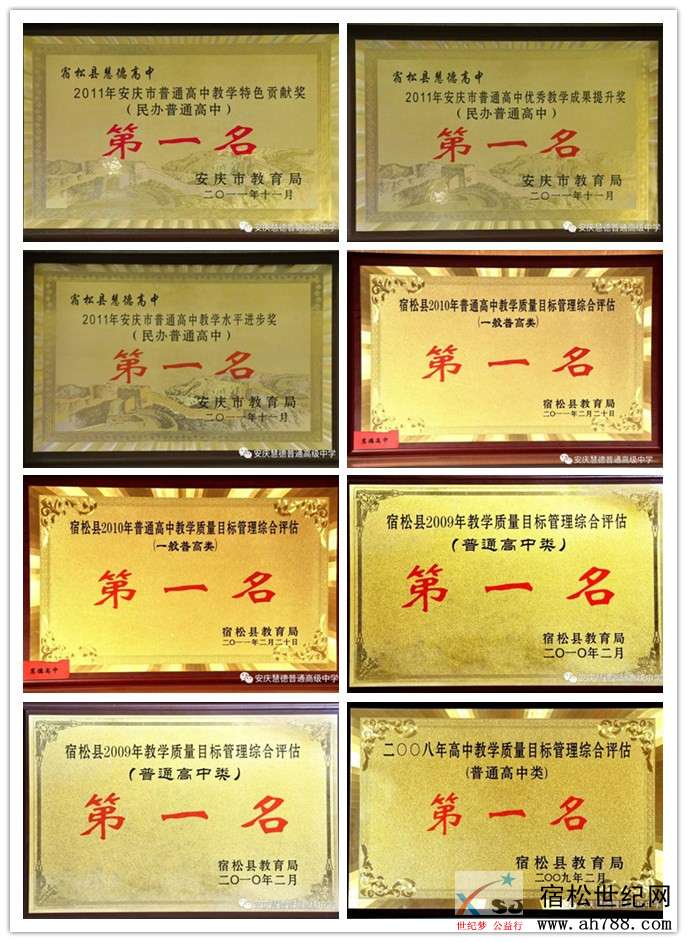 宿松县慧德高中
2011年安庆市普通高中教学特色贡献奖
（民办普通高中）
第一名
安庆市教育局
二〇一一年十一月
安庆慧德普通高级中学
宿松县慧德高中
2011年安庆市普通高中优秀教学成果提升奖
（民办普通高中）
第一名
安庆市教育局
二〇一一年十一月
安庆慧德普通高级中学
宿松县慧德高中
2011年安庆市普通高中教学水平进步奖
（民办普通高中）
第一名
安庆市教育局
二〇一一年十一月
安庆慧德普通高级中学
宿松县2010年普通高中教学质量目标管理综合评估
(一般普高类)
第一名
宿松县教育局
二〇一一年二月二十日
慧德高中
安庆慧德普通高级中学
宿松县2010年普通高中教学质量目标管理综合评估
(一般普高类)
第一名
宿松县教育局
二〇一一年二月二十日
慧德高中
安庆慧德普通高级中学
宿松县2009年教学质量目标管理综合评估
（普通高中类）
第一名
宿松县教育局
二〇一〇年二月
安庆慧德普通高级中学
宿松县2009年教学质量目标管理综合评估
（普通高中类）
第一名
宿松县教育局
二〇一〇年二月
安庆慧德普通高级中学
二〇〇八年高中教学质量目标管理综合评估
(普通高中类)
第一名
宿松县教育局
二〇〇九年二月
XSJ
世纪梦 公益行
宿松世纪网
www.ah788.com